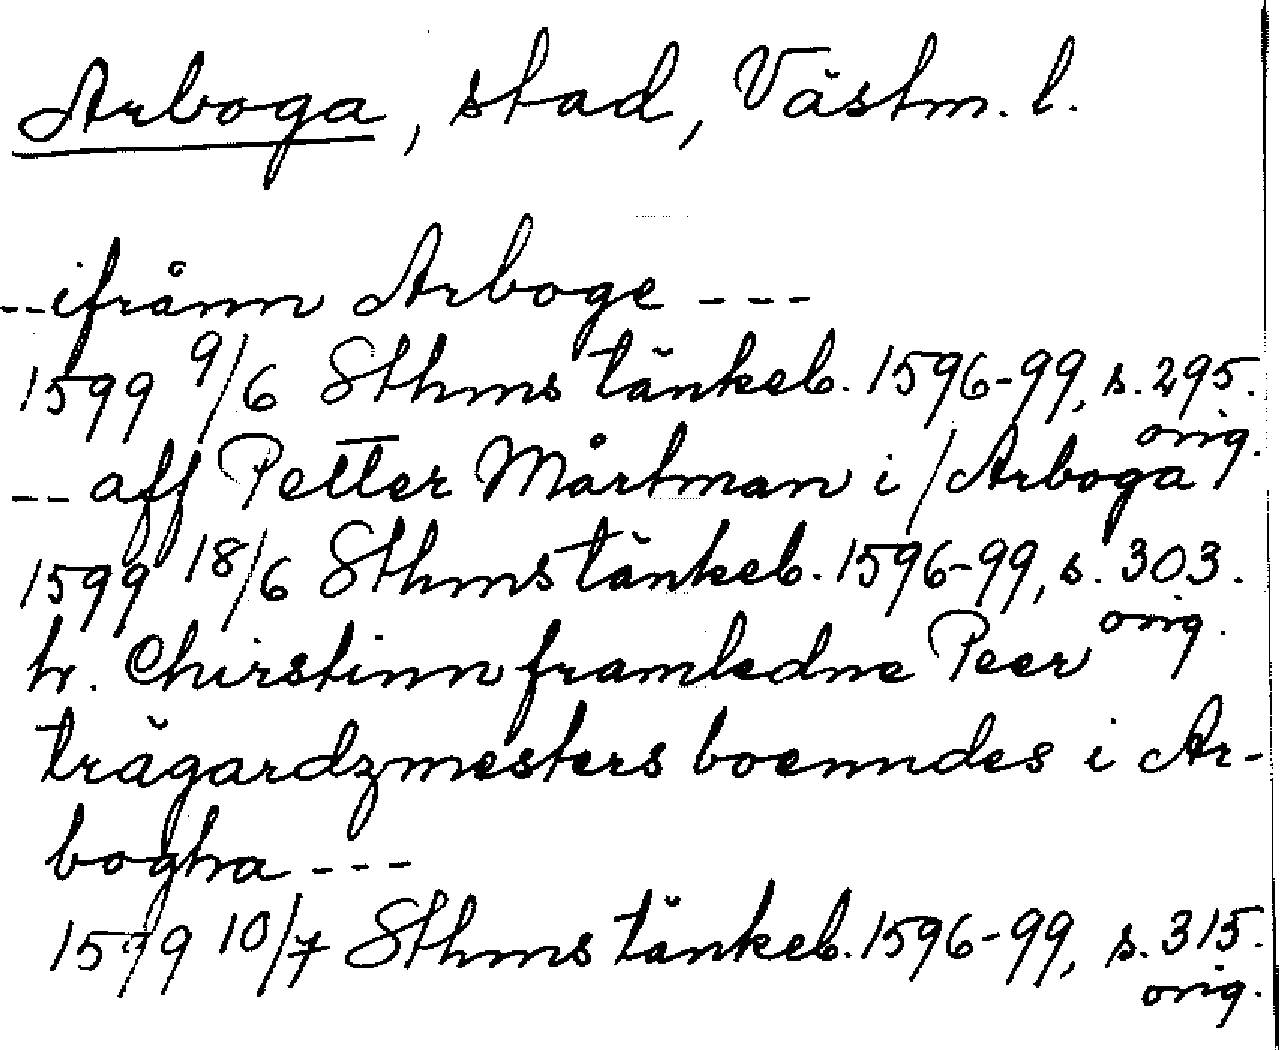 Arboga, stad, Västm. l.
--ifrånn Arboge ---
1599 9/6 Sthms tänkeb. 1596-99, s. 295.
orig.
-- aff Petter Mårtman i / Arboga
1599 18/6 Sthms tänkeb. 1596-99, s. 303.
orig.
h. Chirstinn framledne Peer
trägardzmesters boenndes i Ar-
bogha ---
1599 10/7 Sthms tänkeb. 1596-99, s. 315.
orig.